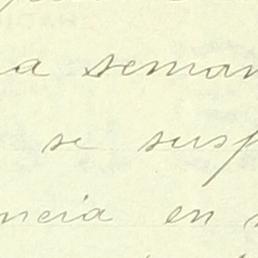 a seman
se susp
ncia en s